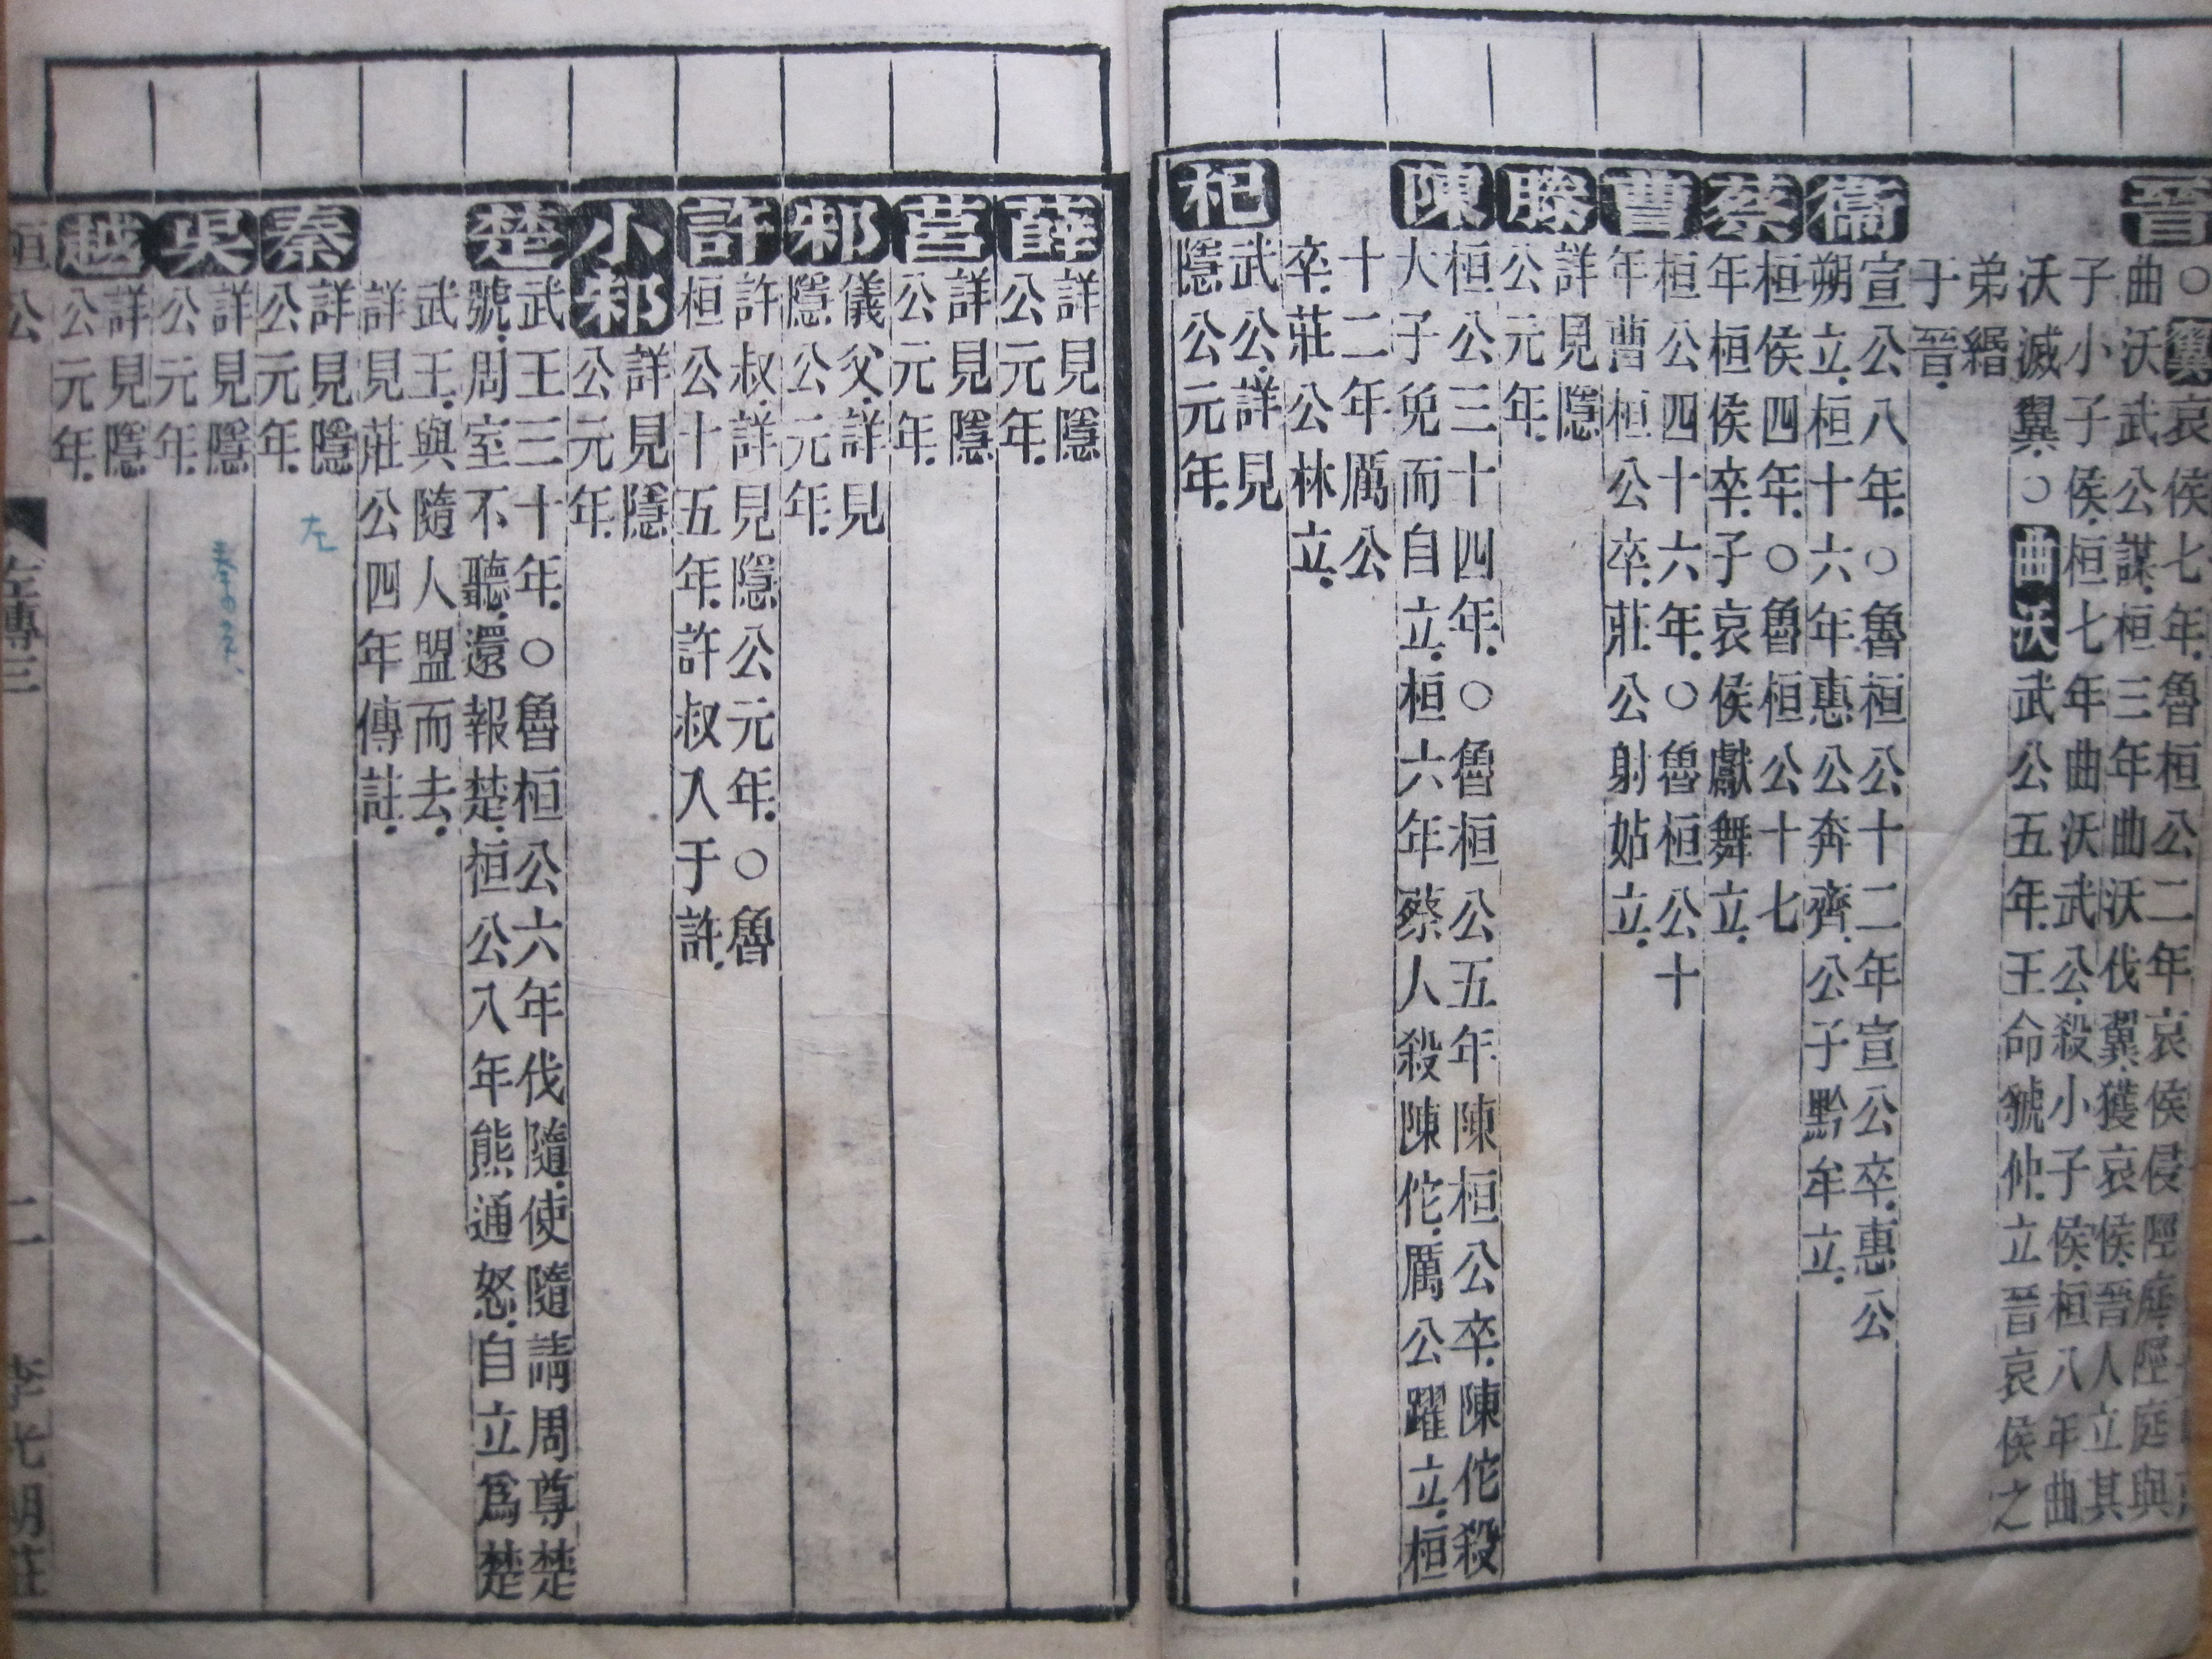 晉
○翼哀侯七年魯桓公二年哀侯侵陘庭陘庭與
曲沃武公謀桓三年曲沃伐翼獲哀侯晉人立其
子小子侯桓七年曲沃武公殺小子侯桓八年曲
沃滅翼○曲沃武公五年王命虢仲立晉哀侯之
弟緡
于晉
衞
宣公八年○魯桓公十二年宣公卒惠公
朔立桓十六年惠公奔齊公子黔牟立
蔡
桓侯四年○魯桓公十七
年桓侯卒子哀侯獻舞立
曹
桓公四十六年○魯桓公十
年曹桓公卒莊公射姑立
滕
詳見隱
公元年
陳
桓公三十四年○魯桓公五年陳桓公卒陳佗殺
大子免而自立桓六年蔡人殺陳佗厲公躍立桓
十二年厲公
卒莊公林立
杞
武公詳見
隱公元年
薛
詳見隱
公元年
莒
詳見隱
公元年
邾
儀父詳見
隱公元年
許
許叔詳見隱公元年○魯
桓公十五年許叔入于許
小邾
詳見隱
公元年
楚
武王三十年○魯桓公六年伐隨使隨請周尊楚
號周室不聽還報楚桓公八年熊通怒自立爲楚
武王與隨人盟而去
詳見莊公四年傳註
秦
詳見隱
公元年
左
吳
詳見隱
公元年
越
詳見隱
公元年
桓公
左傳三
二
李光明莊